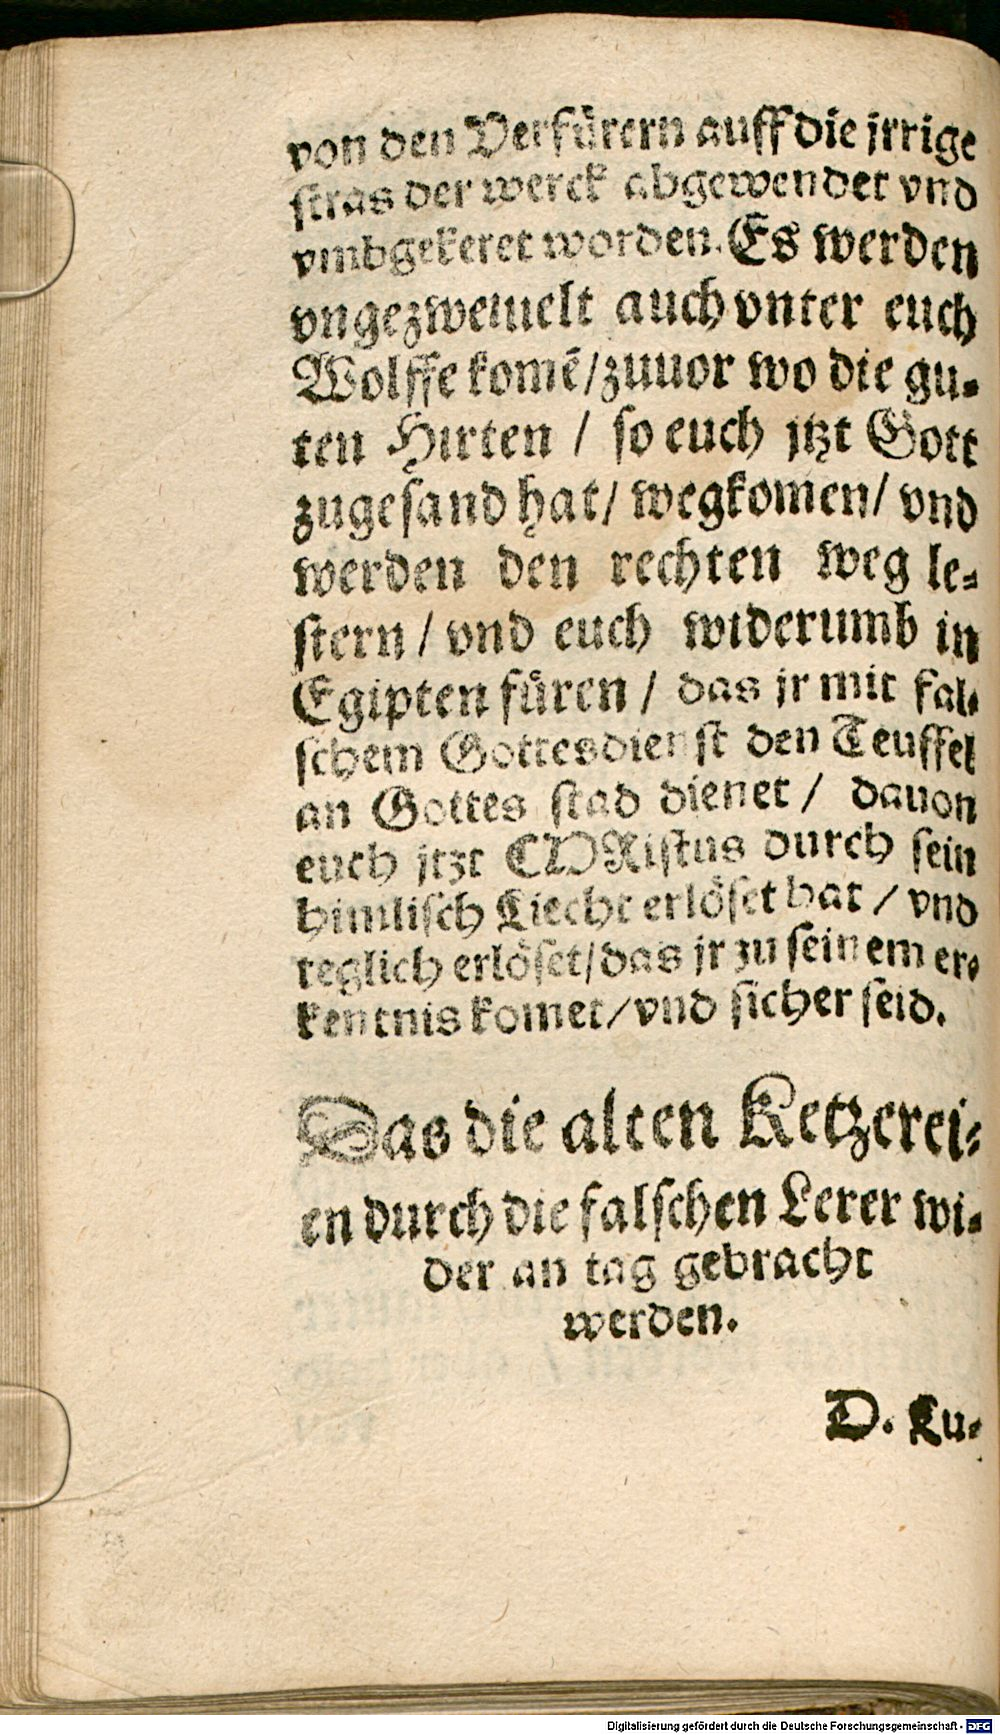 von den Verfürern auff die jrrige
stras der werck abgewendet vnd
vmbgekeret worden. Es werden
vngezweiuelt auch vnter euch
Wolffe komē/zuuor wo die gu-
ten Hirten / so euch jtzt Gott
zugesand hat/ wegkomen/ vnd
werden den rechten weg le-
stern / vnd euch widerumb in
Egipten füren / das jr mit fal-
schem Gottesdienst den Teuffel
an Gottes stad dienet / dauon
euch jtzt CHRistus durch sein
himlisch Liecht erlöset hat / vnd
teglich erlöset/das jr zu seinem er-
kentnis komet/vnd sicher seid.
Das die alten Ketzerei-
en durch die falschen Lerer wi-
der an tag gebracht
werden.
D. Lu-
Digitalisierung gefördert durch die Deutsche Forschungsgemeinschaft - DFG